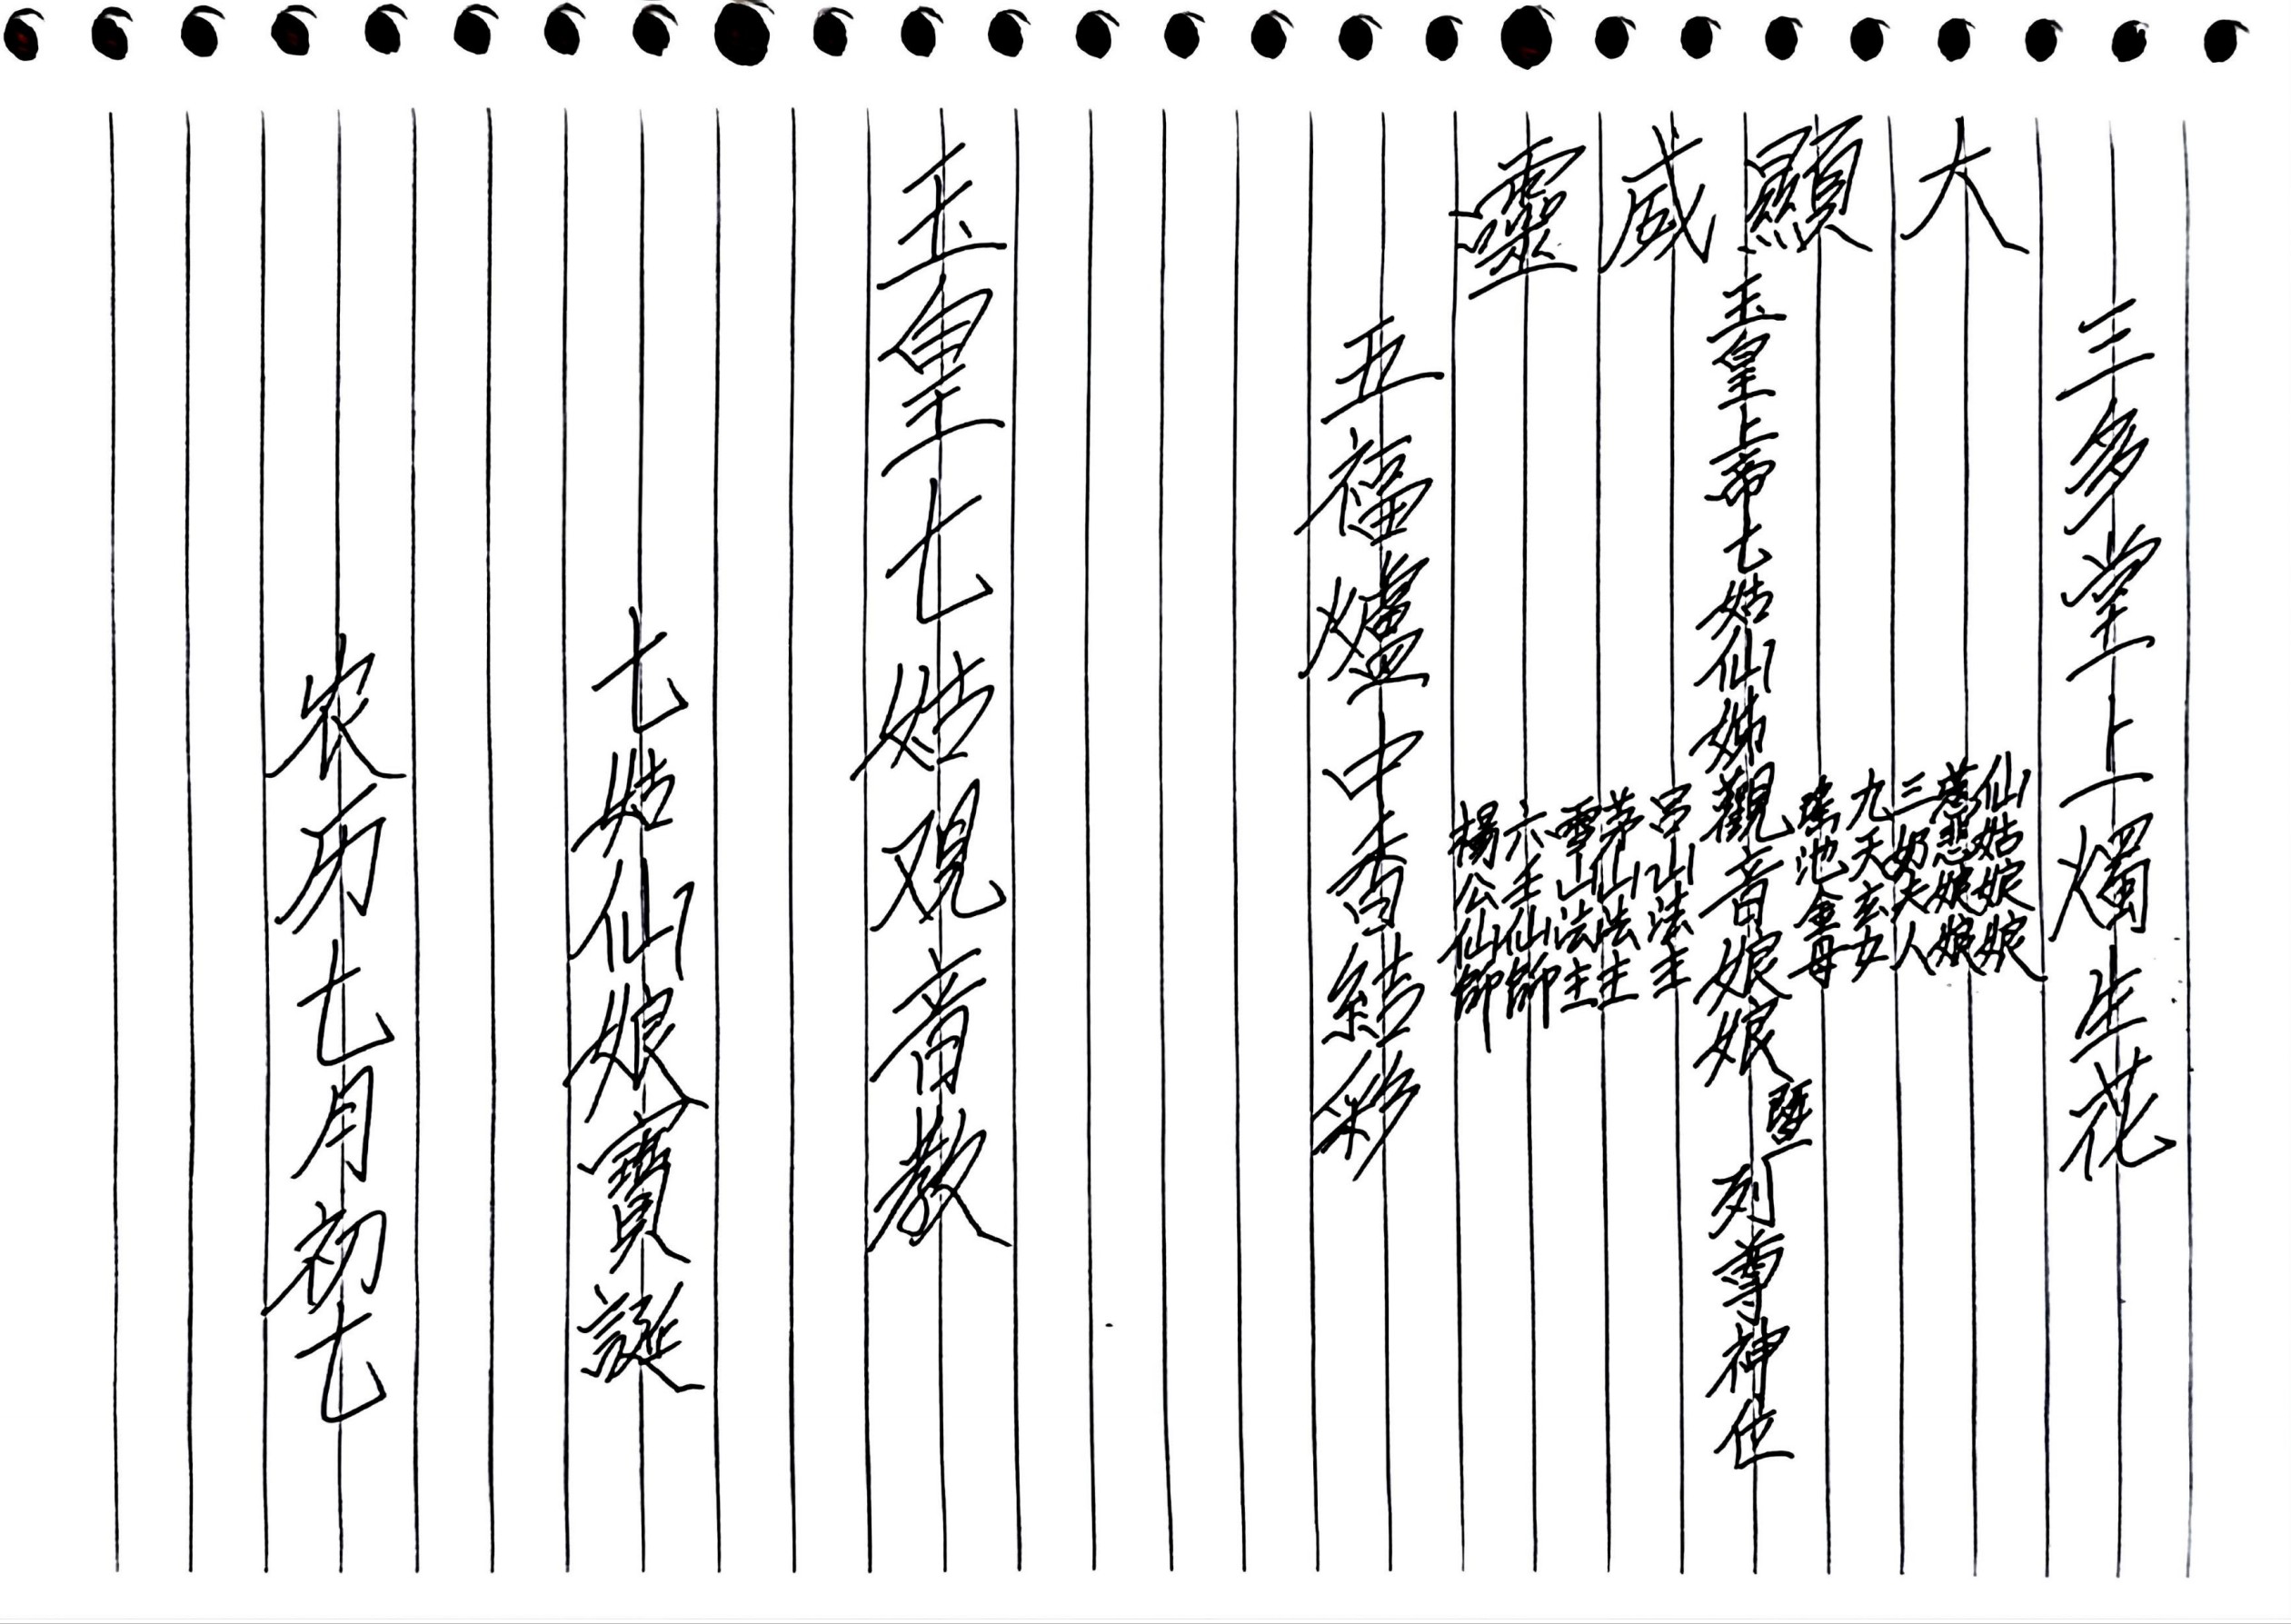 三多堂上燭生花
大顯威靈
仙姑娘娘
慈悲娘娘
三奶夫人
九天玄女
瑤池金母
玉皇上帝七姑仙姊觀音娘娘暨列尊神位
呂山法主
茅山法主
雪山法主
六壬仙師
楊公仙師
五福爐中香結彩
玉皇七姑观音教
七姑仙娘寶誕
农历七月初七